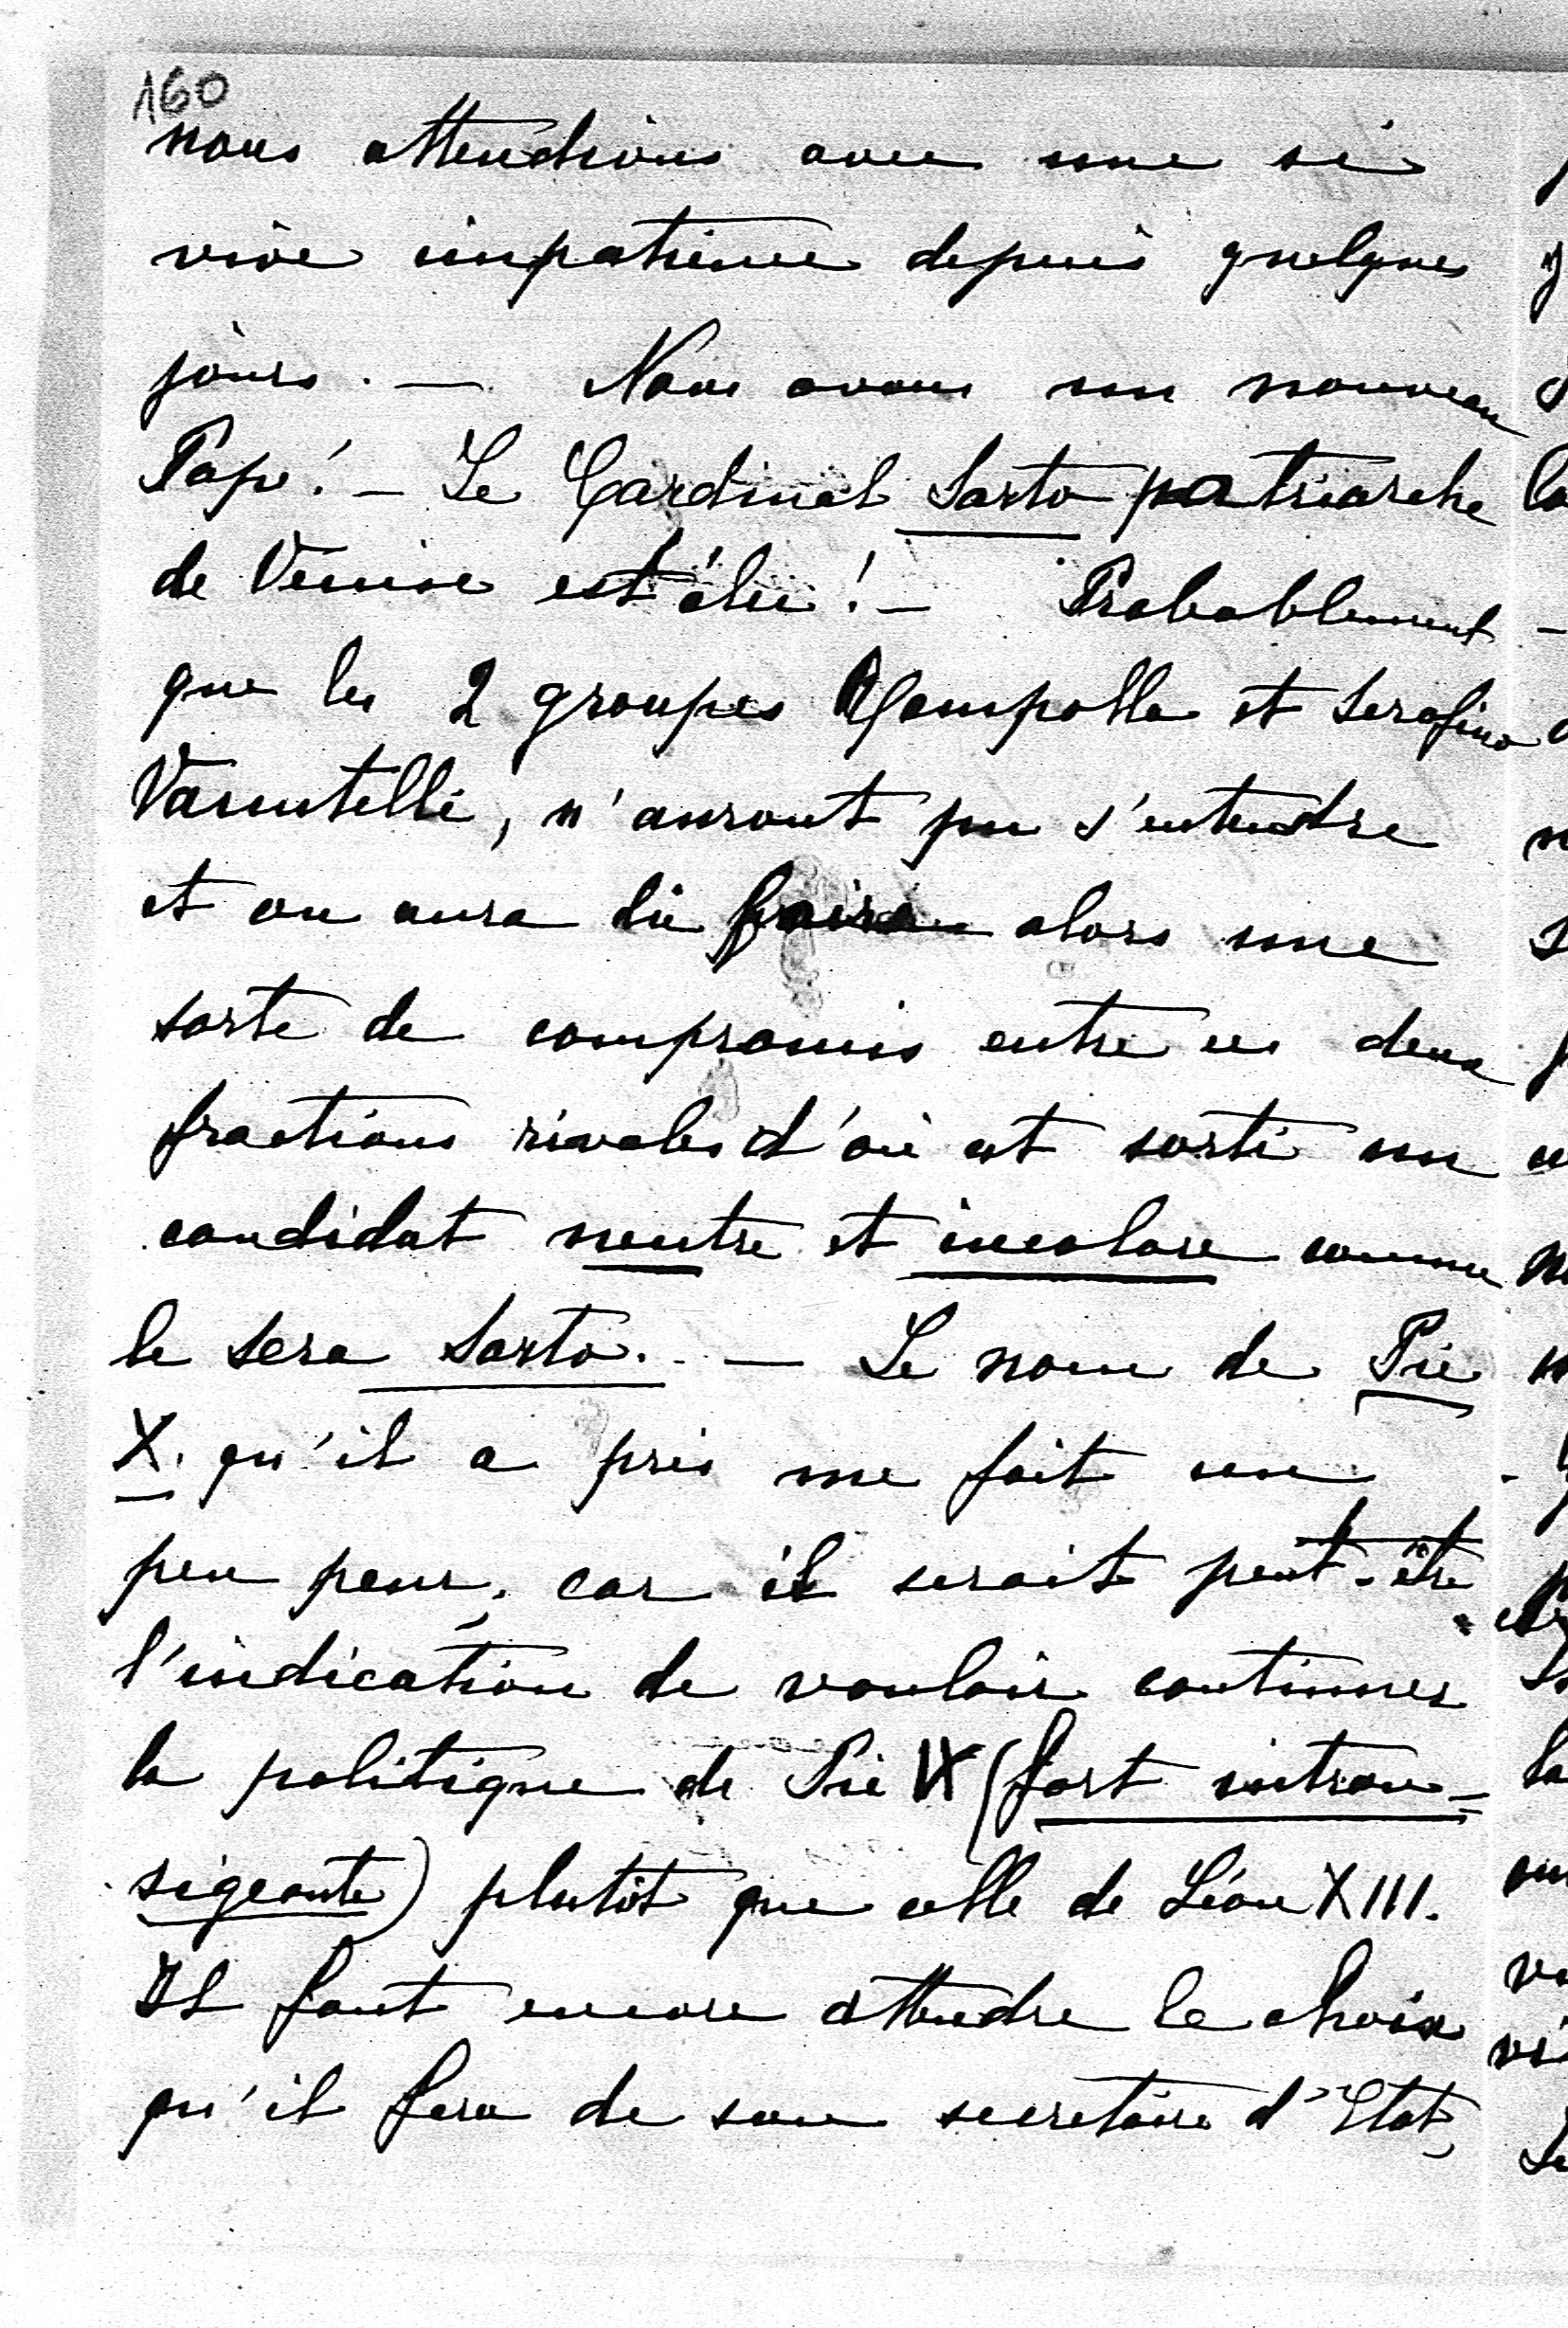 160
nous attendions avec une si
vive impatience depuis quelques
jours. — Nous avons un nouveau
Pape! — Le Cardinal Sarto patriarche
de Venise est élu! — Probablement
que les 2 groupes Rampolla et Serafino
Vannutelli, n'auront pu s'entendre
et on aura dû faire alors une
sorte de compromis entre ces deux
fractions rivales d'où est sorti un
candidat neutre et incolore comme
le sera Sarto. — Le nom de Pie
X. qu'il a pris me fait un
peu peur, car il serait peut-être
l'indication de vouloir continuer
la politique de Pie IX (fort intran=
sigeante) plutôt que celle de Léon XIII.
Il faut encore attendre le choix
qu'il fera de son secretaire d'Etat,